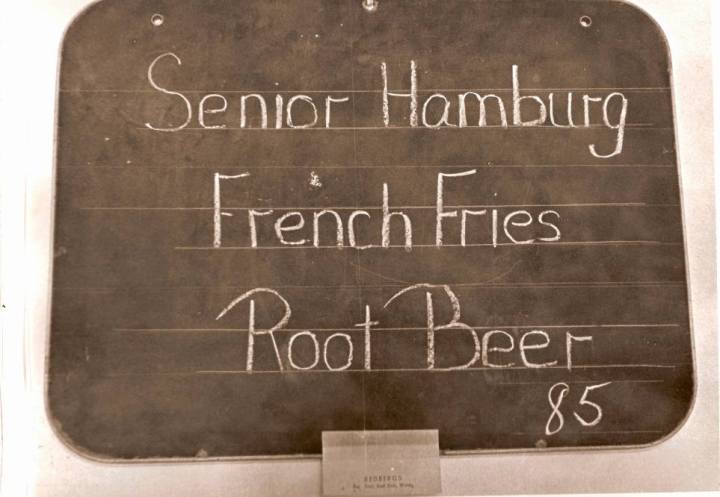 Senior Hamburg
French Fries
Root Beer
85